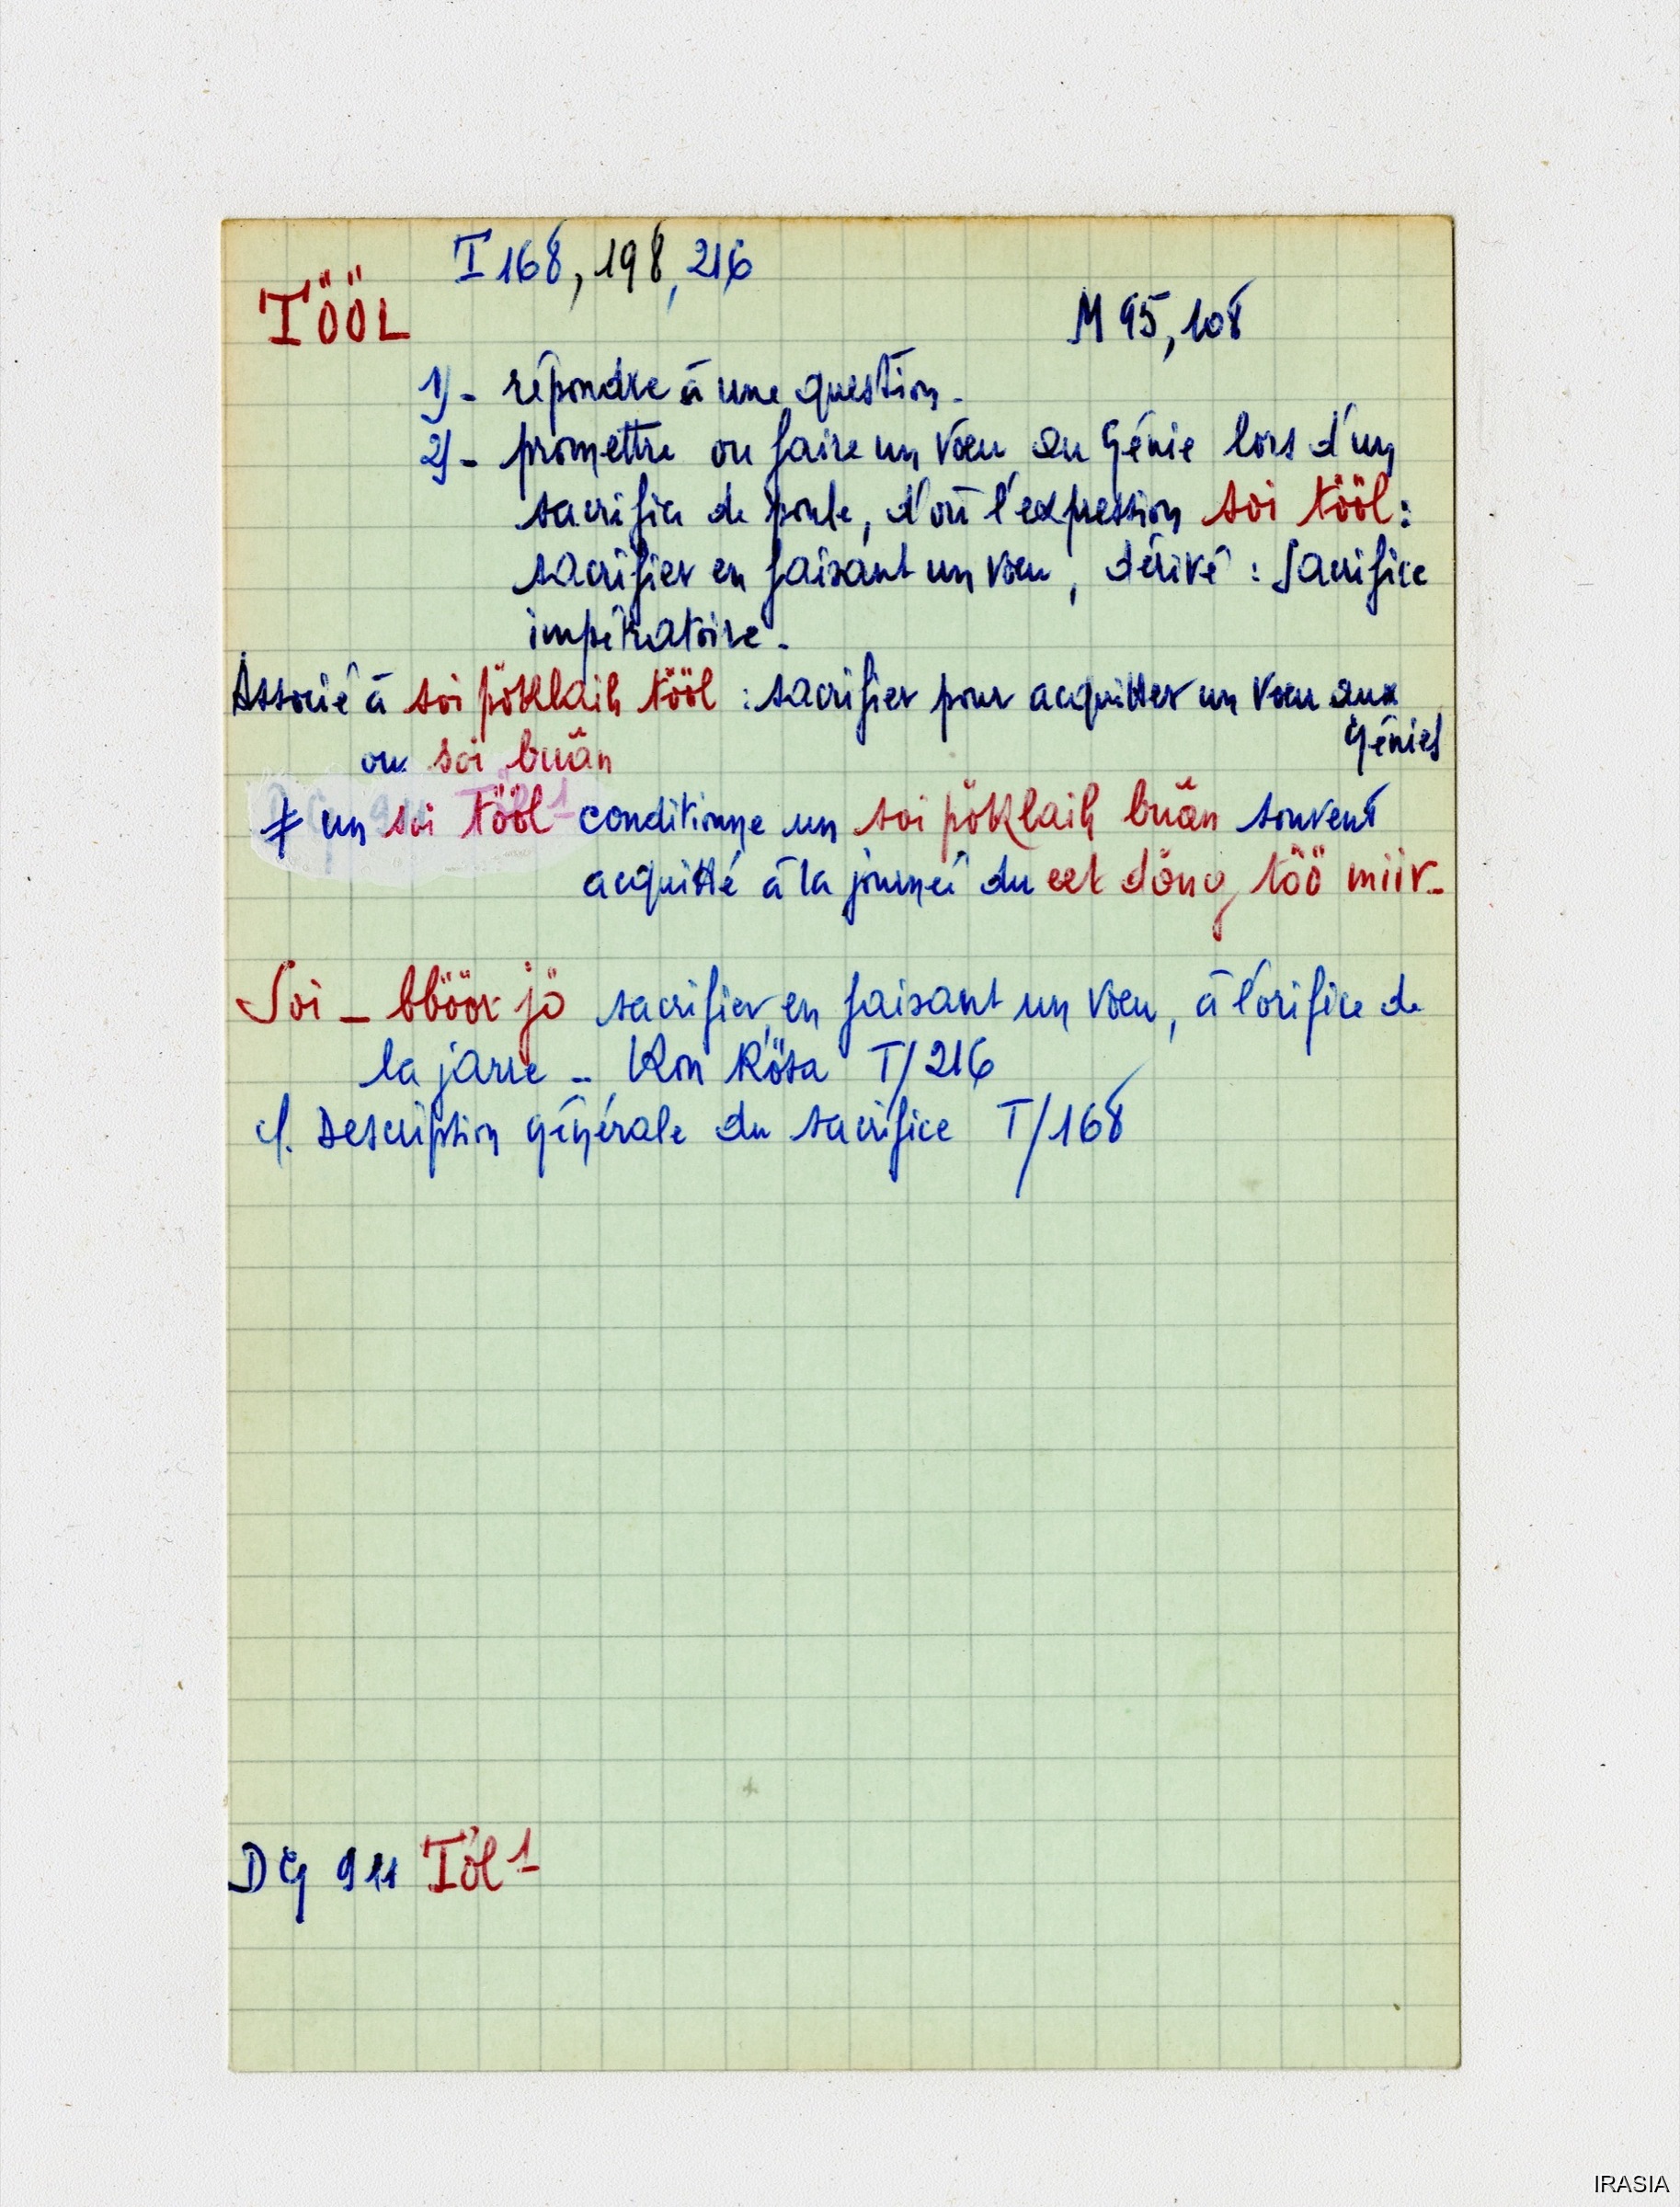 I 168, 198, 216
TÖÖL
M 95, 108
1) - répondre à une question.
2) - promettre ou faire un voeu au Génie lors d'un
sacrifice de poule, d'où l'expression soi tööl :
sacrifier en faisant un voeu, dérivé : Sacrifice
impétratoire.
Associé à soi pöklaih tööl : sacrifier pour acquitter un voeu aux
Génies
ou soi buăn
≠ un soi tööl conditionne un soi pöklaih buăn souvent
acquitté à la journée du eet döng töö miir.
Soi - bböör jö sacrifier, en faisant un voeu, à l'orifice de
la jarre - Kon Rösa T/216
cf. Description générale du sacrifice T/168
DG 911 Töl 1
IRASIA